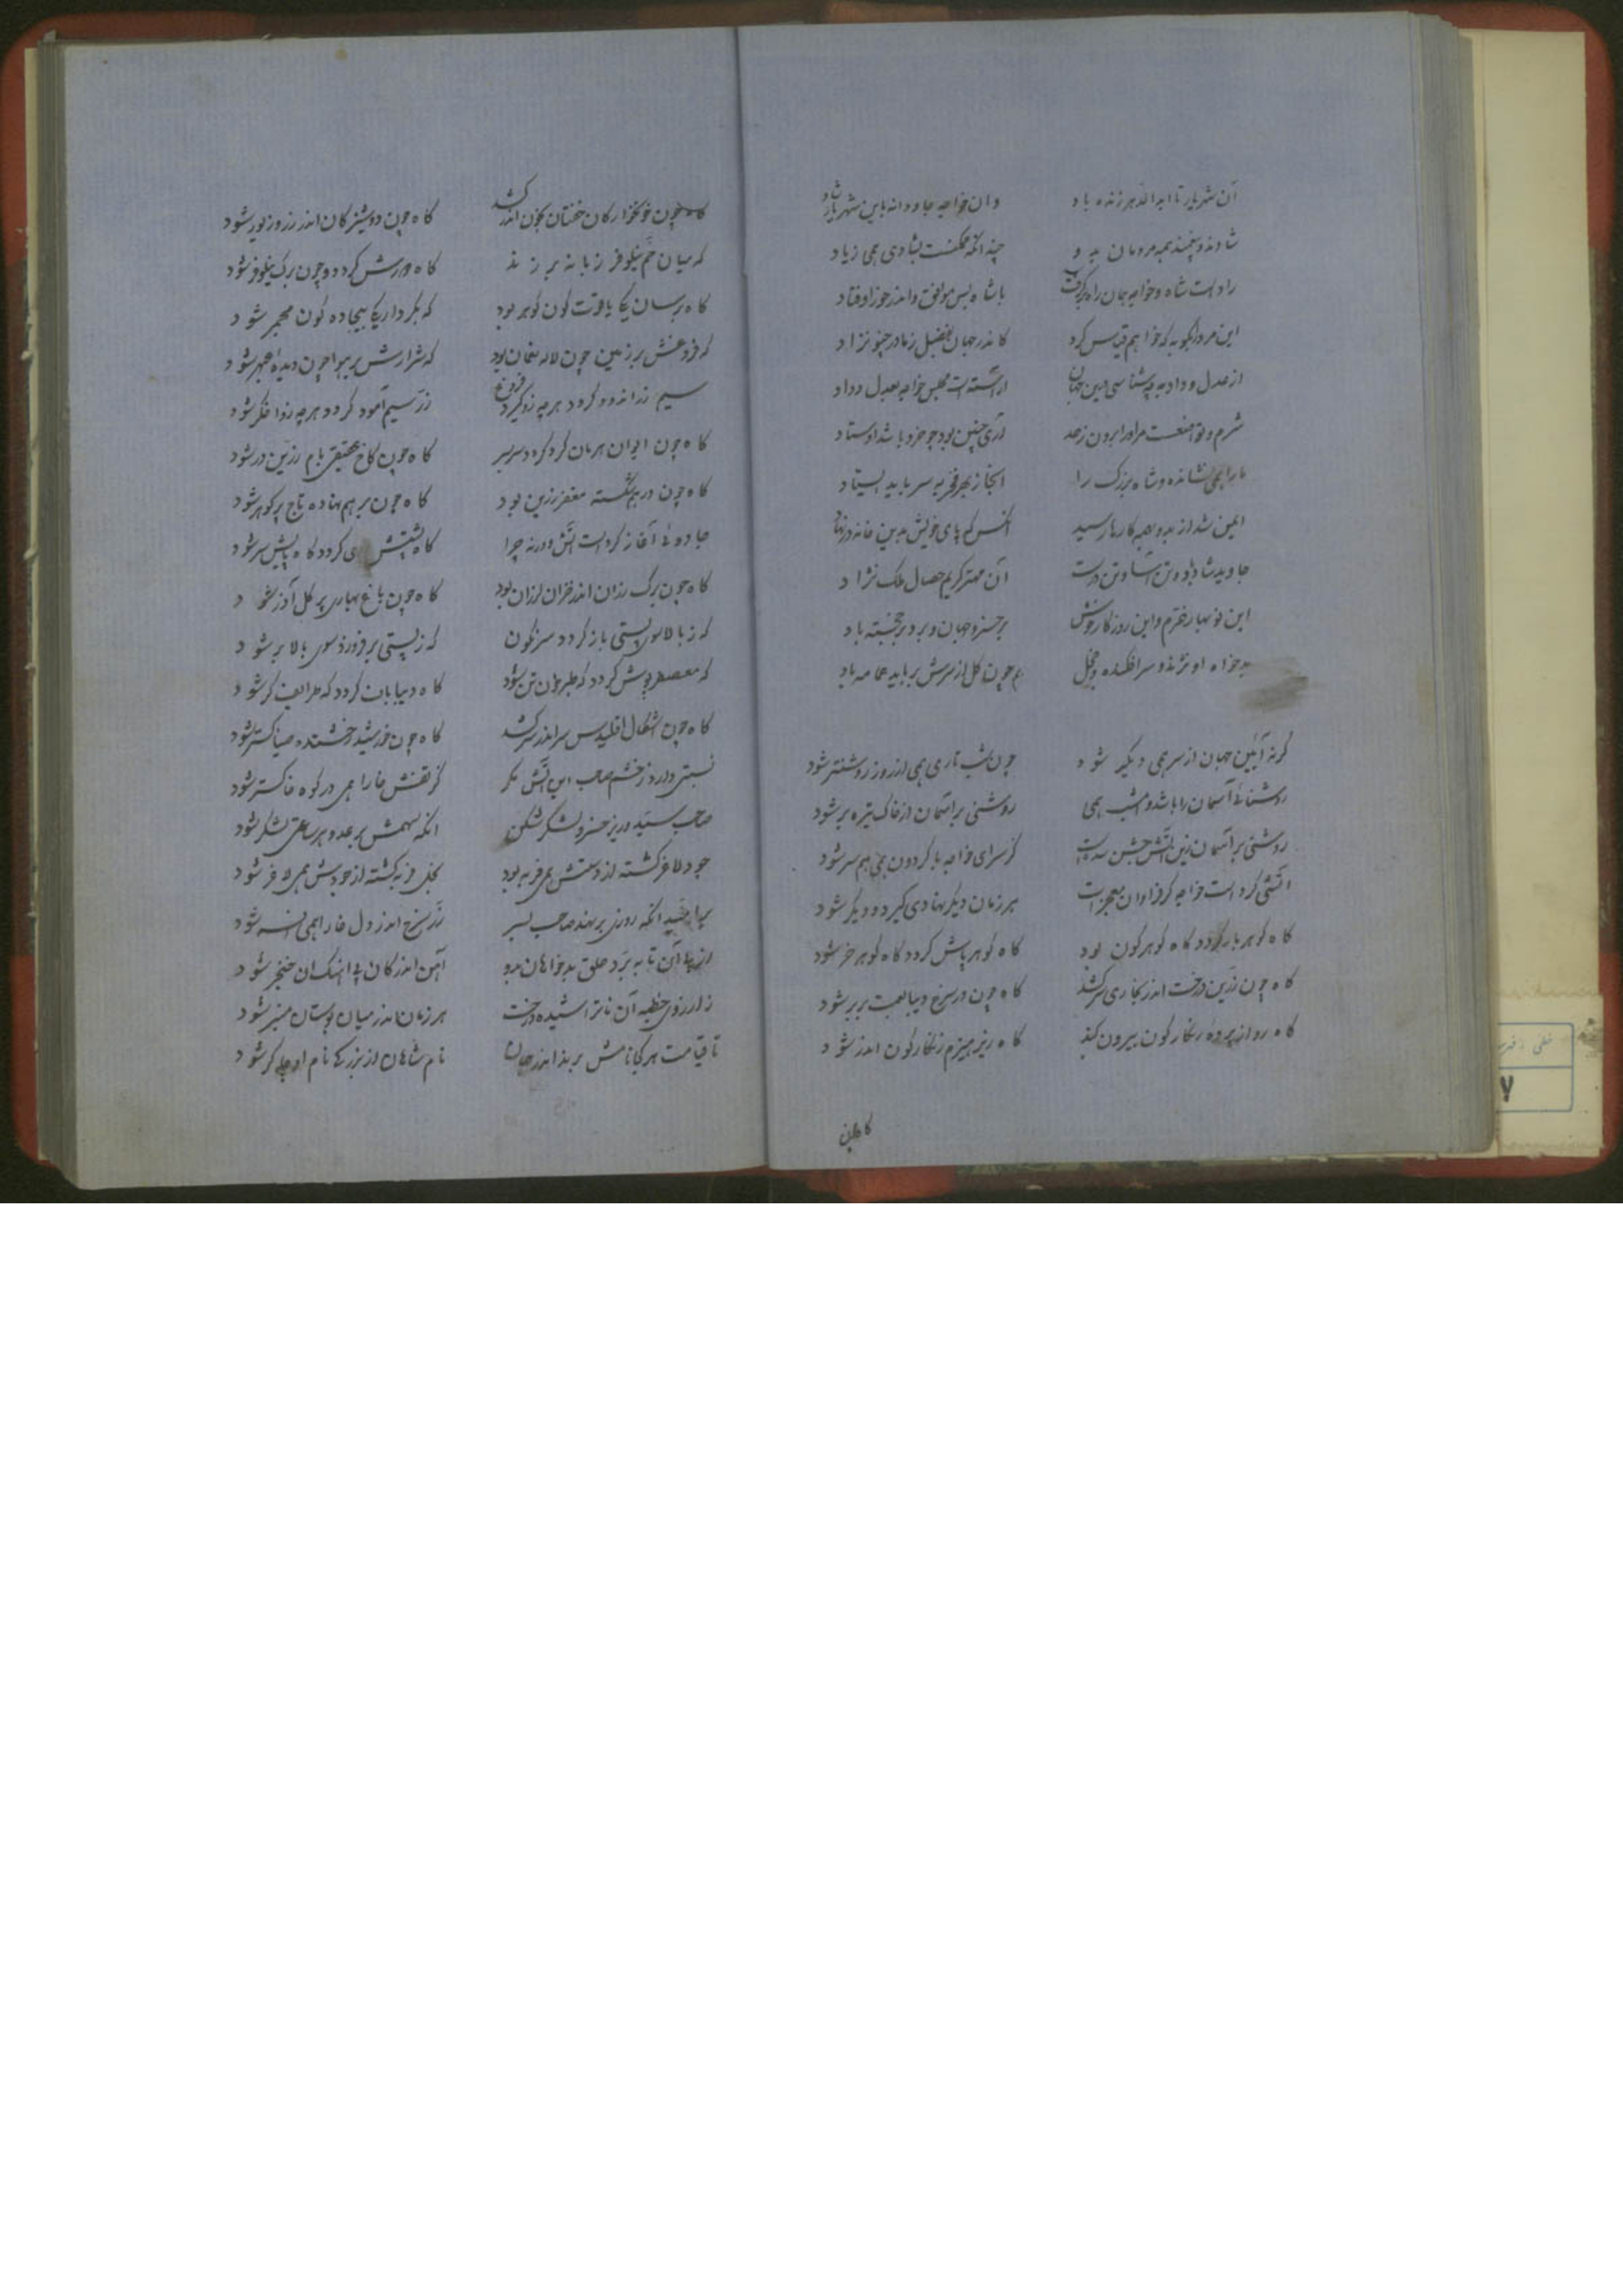 آن شهریار تا ابد الدهر زنده باد وان خواجه جاودانه باین شهریار شاد
شادند و بهمه مردمان بد و چندانکه ممکنست بشادی همی زیاد
راد است شاه و خواجه جهان راه برگرفت با شاه بس موافق و اندر خور اوفتاد
این مرد را بگو به که خواهم قیاس کرد کاندر جهان بفضل ز مادر چنو نزاد
از عدل و داد به چه شناسی درین جهان آراسته است مجلس خواجه بعدل و داد
شرم و تواضعست مر او را برون ز حد آری چنین بود چو خرد باشد اوستاد
ما را همی نشاند و شاه بزرگ را آنجا ز بهر فخر بسر باید ایستاد
ایمن شد از بد و بهمه کارها رسید آنکس که پای خویش بدین خانه در نهاد
جاوید شاد باد و تن آسا و تن درست آن مهتر کریم خصال ملک نژاد
این نوبهار خرم و این روزگار خوش بر خسرو جهان و برو بر خجسته باد
بدخواه او نژند و سرافکنده و خجل چون گل از سرش برباید عمامه باد
گر نه آئین جهان از سر همی دیگر شود چون شب تاری همی از روز روشنتر شود
روشنائی آسمان را باشد و امشب همی روشنی بر آسمان از خاک تیره بر شود
روشنی بر آسمان زین آتش جشن سده است کز سرای خواجه با گردون همی همسر شود
آتشی کرد است خواجه کز فراوان معجزات هر زمان دیگر نهادی گیرد و دیگر شود
گاه گوهر بار گردد گاه گوهر گون بود گاه گوهر پاش گردد گاه گوهر خر شود
گاه چون زرین درخت اندر نگاری سر کشد گاه چون در سرخ دیبا لعبت بربر شود
گاه روی از پرده زنگارگون بیرون کند گاه زیر هیزم زنگارگون اندر شود
گاه چون
گاه چون خونخوارگان خفتان بخون اندر کشد گاه چون دوشیزگان اندر زر و زیور شود
که میان خم نیلوفر زبانه بر زند گاه دورش گرد دود چون برگ نیلوفر شود
گاه برسان یکی یاقوت گون گوهر بود که بکردار یکی بیجاده گون مجمر شود
که فروغش بر زمین چون لاله نعمان بود که شرارش بر هوا چون دیده عبهر شود
سیم زر اندود گردد هر چه زو گیرد فروغ زر سیم آمود گردد هر چه زو اخگر شود
گاه چون ایوان هرمان گرد گردد سر بسر گاه چون کاخ عقیقین بام زرین در شود
گاه چون درهم شکسته مغفر زرین بود گاه چون برهم نهاده تاج پر گوهر شود
جادوئی آغاز کرد است آتش ورنه چرا گاه پشتش روی گردد گاه پایش سر شود
گاه چون برگ رزان اندر خزان لرزان بود گاه چون باغ بهاری پر گل آذر شود
که ز بالا سوی پستی باز گردد سرنگون که ز پستی بر فروزد سوی بالا بر شود
که معصفر پوش گردد که طبرخون تن شود گاه دیبا باف گردد که طرایف گر شود
گاه چون اشکال اقلیدس سر اندر سر کشد گاه چون خورشید رخشنده ضیا گستر شود
نسبتی دارد ز خشم صاحب این آتش مگر کز تفش خارا همی در کوه خاکستر شود
صاحب سید وزیر خسرو لشکر شکن آنکه سهمش بر عدو هر ساعتی لشکر شود
جود لاغر گشته از دستش همی فربه بود بخل فربه گشته از جودش همی لاغر شود
برامید آنکه روزی برنهد صاحب بسر زر سرخ اندر دل خارا همی افسر شود
از پی آن تا ببرد حلق بدخواهان بدو آهن اندر کان بی آهنگران خنجر شود
ز آرزوی خطبه آن ناتراشیده درخت هر زمان اندر میان بوستان منبر شود
تا قیامت هر کجا نامش برند اندر جهان نام شاهان از بزرگی نام او چاکر شود
خطی
۷